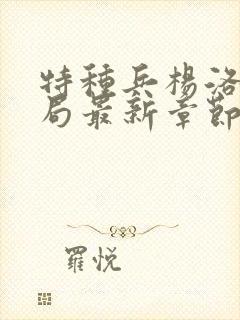 特種兵楊洛
局最新章節
羅悅